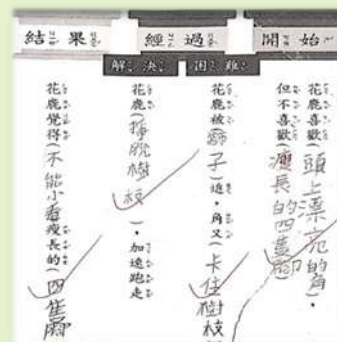 開始
經過
結果
困難
解決
花鹿喜歡(頭上漂亮的角)，
但不喜歡(瘦長的四隻腳)
花鹿被獅子追，角又(卡住樹枝
花鹿(掙脫樹枝)，加速跑走
花鹿覺得(不能小看瘦長的(四隻腳